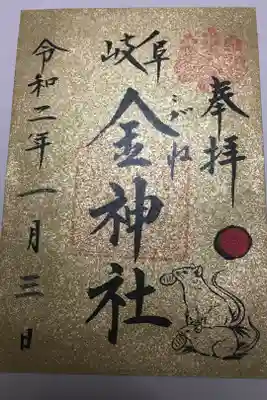 奉拝
岐阜
金神社
こがね
令和二年一月三日